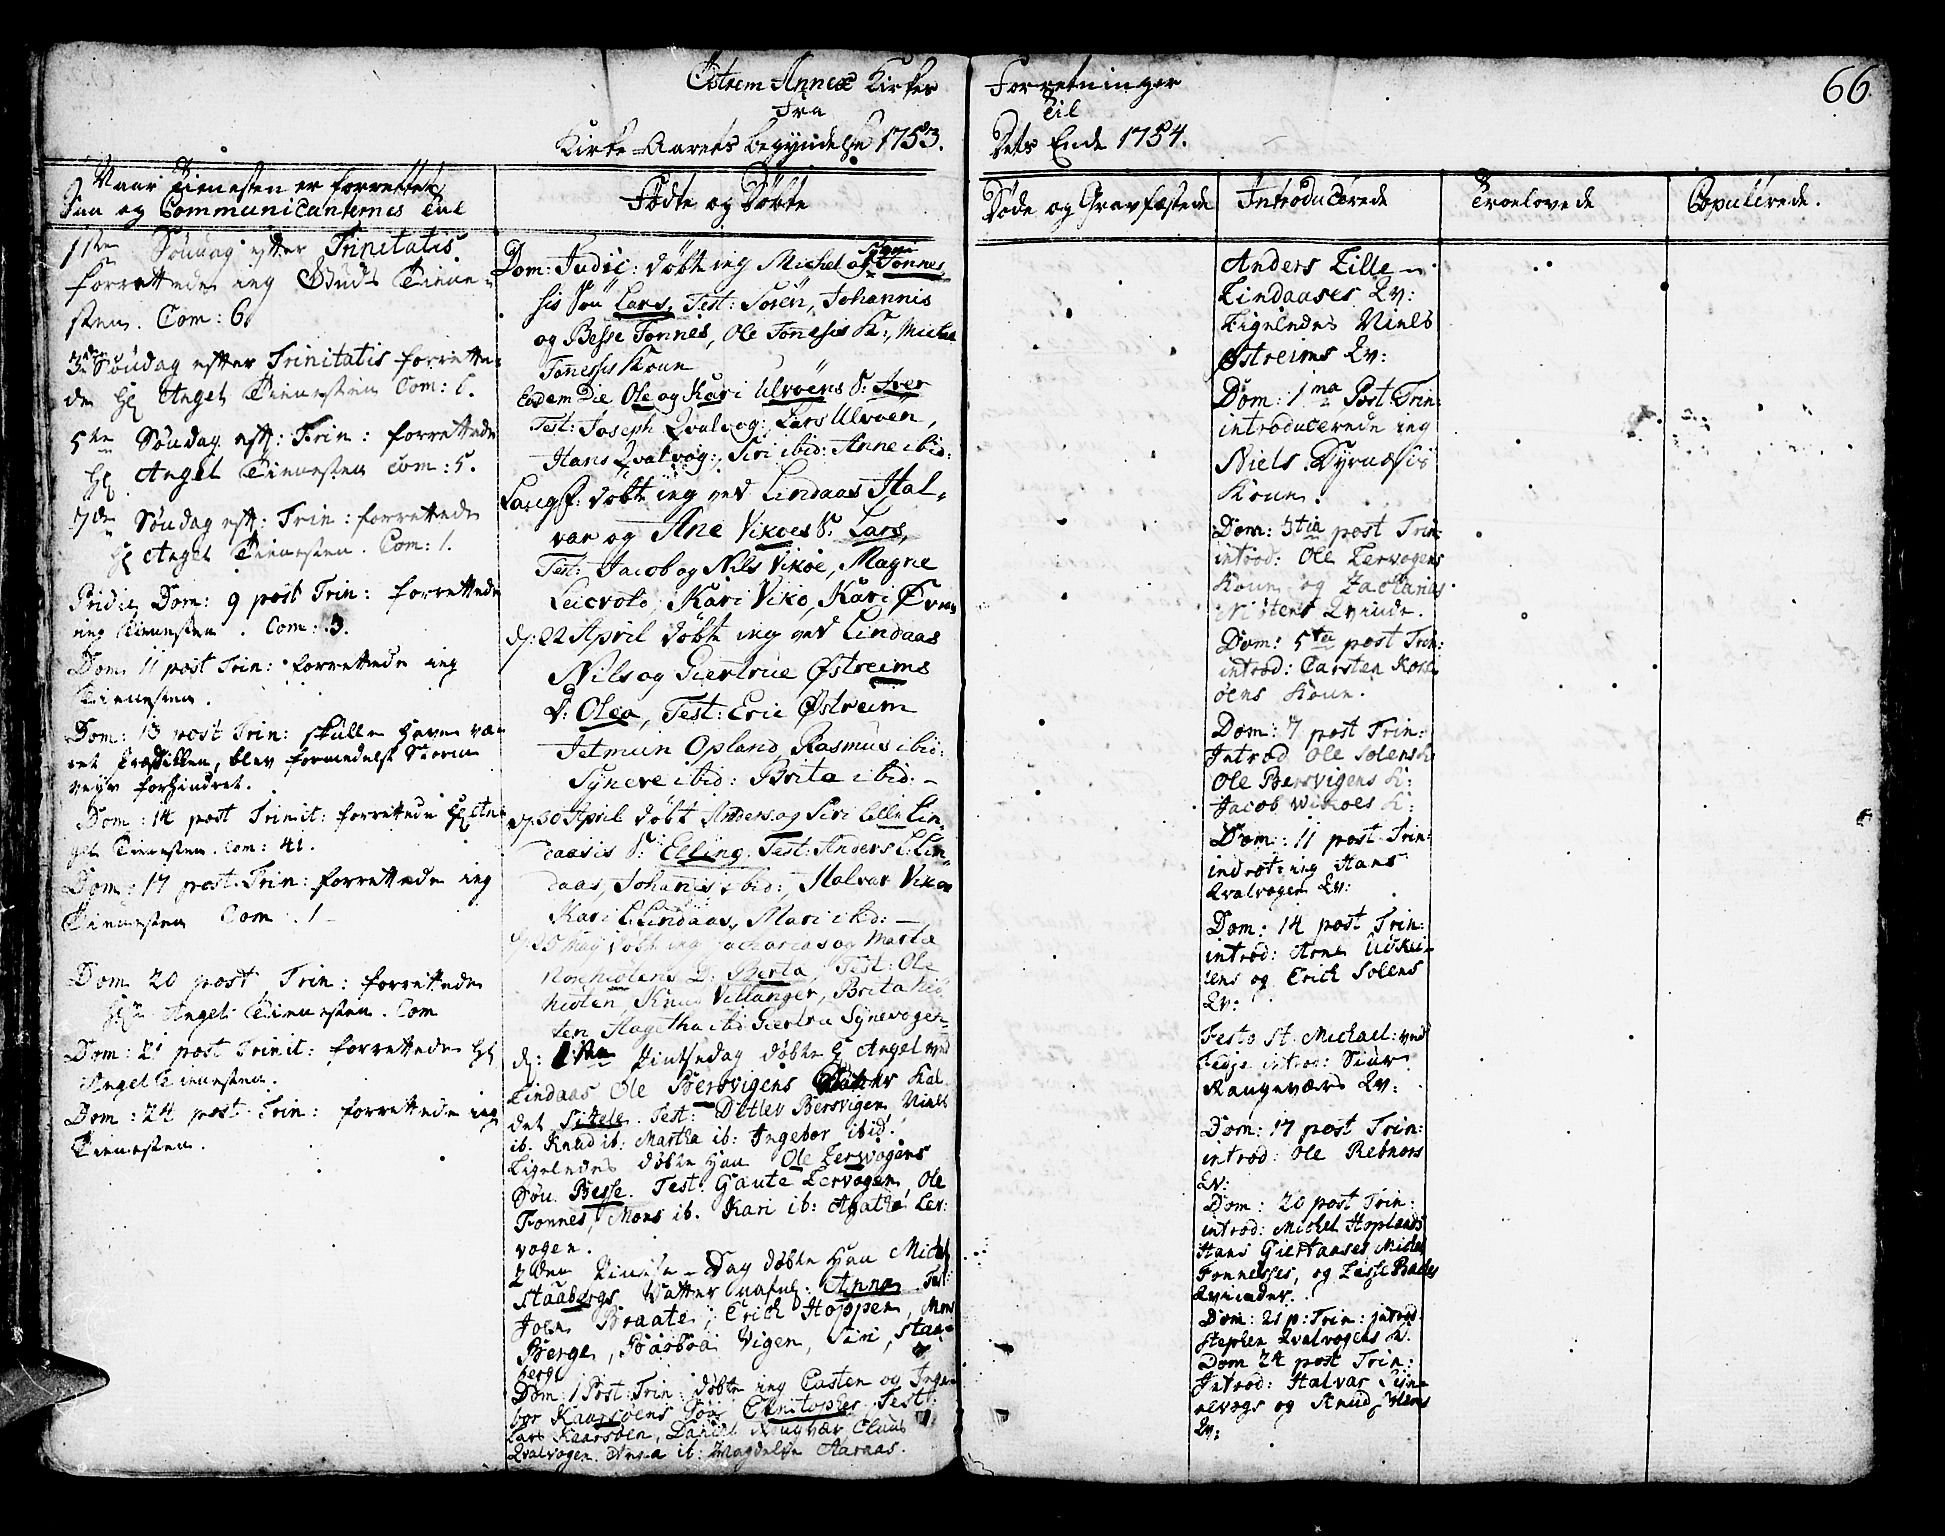 Østrem Annex Kirkes Forretninger
66.
Fra Til
Kirke-Aarets begyndelse 1753. Dets Ende 1754.
Naar Tienesten er forrettet,
Saa og Communicanternes Tal
1ste Søndag efter Trinitatis
forrettede ieg Guds Tiene-
sten. Com: 6.
3de Søndag efter Trinitatis forrette-
de Hr Angel Tienesten Com: 6.
5te Søndag eft: Trin: forrettede
Hr. Angel Tienesten Com: 5.
7de Søndag eft: Trin: forrettede
Hr Angel Tienesten. Com: 1.
Pridie Dom: 9 post Trin: forrettede
ieg Tienesten. Com: 3.
Dom 11 post Trin: forrettede ieg
Tienesten.
Dom: 13 post Trin: skulle have væ-
ret Prædiken, blev formedelst Storm
veyr forhindret.
Dom: 14 post Trinit: forrettede Hr An-
gel Tienesten. Com: 41.
Dom: 17 post Trin: forrettede ieg
Tienesten Com. 1
Dom 20 post Trin: forrettede
Hr Angel Tienesten. Com
Dom: 21 post Trinit: forrettede Hr
Angel Tienesten.
Dom: 24 post Trin: forrettede ieg
Tienesten.
Fødte og Døbte
Dom: Judic: døbt ieg Michel og Fonnes-
sis Søn Lars, Test: Søren, Johannis
og Besse Fonnes, Ole Fonnesis K:, Michel
Fonnessis Kone
Eodem Die Ole og Kari Ulvøens S: Iver
Test: Joseph Qvalvog:, Lars Ulvøen,
Hans Qvalvog:, Siri ibid: Anne ibid:
Langf: døbte ieg ved Lindaas Hal-
var og Ane Vikøes S. Lars,
Test: Jacob og Nils Vikøe, Magne
Kari Vikø, Kari
d: 22 April døbte ieg ved Lindaas
Nils og Giertrue Østreims
D: Olea, Test: Eric Østreim
Jetmun Opland, Rasmus ibid:
Syneve ibid: Brita ibid:
d: 30 April døbt Anders og Siri Lille Lin-
daasis S: Elling. Test: Anders L: Lin-
daas, Johanes ibid:, Halvar Vikøe
Kari L: Lindaas, Mari ibid:
døbt ieg Zacharias og Marta
D: Berta, Test: Ole
Knud Villanger, Brita
Agatha ibid Giertru Synevogen
d: 1ste Pintsedag døbte Hr Angel ved
Lindaas Ole Bersvigens Kal-
det Sitele. Test: Detlev Bersvigen, Niels
ib. Knud ib: Martha ib: Ingebor ibid.
Ligeledes døbte Han Ole Lervogens
Søn Besse. Test: Gaute Lervogen, Ole
Fonnes, Mons ib. Kari ib: Agatha Ler-
vogen.
2den Pintse-Dag døbte Han Michel
Staabergs Datter nafnl: Anna. Test:
Joen Braate, Erich Hoppen, Mons
Berge, Baarboe Vigen, Siri Staa-
berg.
Dom: 1 Post: Trin: døbte ieg Casten og Inge-
bor Kaarsøens Søn Christopher Test:
Lars Kaarsøen, Daniel Claus
Qvalvogen, Anna ib: Magdelse Aaraas.
Døde og Gravfæstede
Introducerede
Anders Lille
Lindaases Qv:
Ligeledes Niels
Østreims Qv:
Dom: 1ma Post Trin:
introducerede ieg
Niels Dyrnæssis
Kone.
Dom: 3tia post Trin:
introd: Ole Lervogens
Kone og Zacharias
Qvinde.
Dom: 5ta post Trin:
introd: Carsten Kors-
øens Kone.
Dom: 7 post Trin:
Introd Ole Solens K:
Ole Bersvigens K:
Jacob Wikøes K:
Dom: 11 post Trin:
ieg Hans
Qvalvogen Qv:
Dom: 14 post Trin:
introd: Arne
og Erich Solens
Qv:
Festo St. Michael: ved
Fedje introd: Siur
Rangeværs Qv:
Dom: 17 post Trin:
introd: Ole Rebnors
Qv:
Dom: 20 post Trin:
introd: Michel Hoplands
Hans Giertaases Michel
Fonnesses, og Lasse
Qvinder.
Dom: 21 p: Trin: introd:
Stephen Qvalvogens K:
Dom 24 post Trin:
Introd: Halvar
og Knud
Qv:
Troelovede
Copulerede.